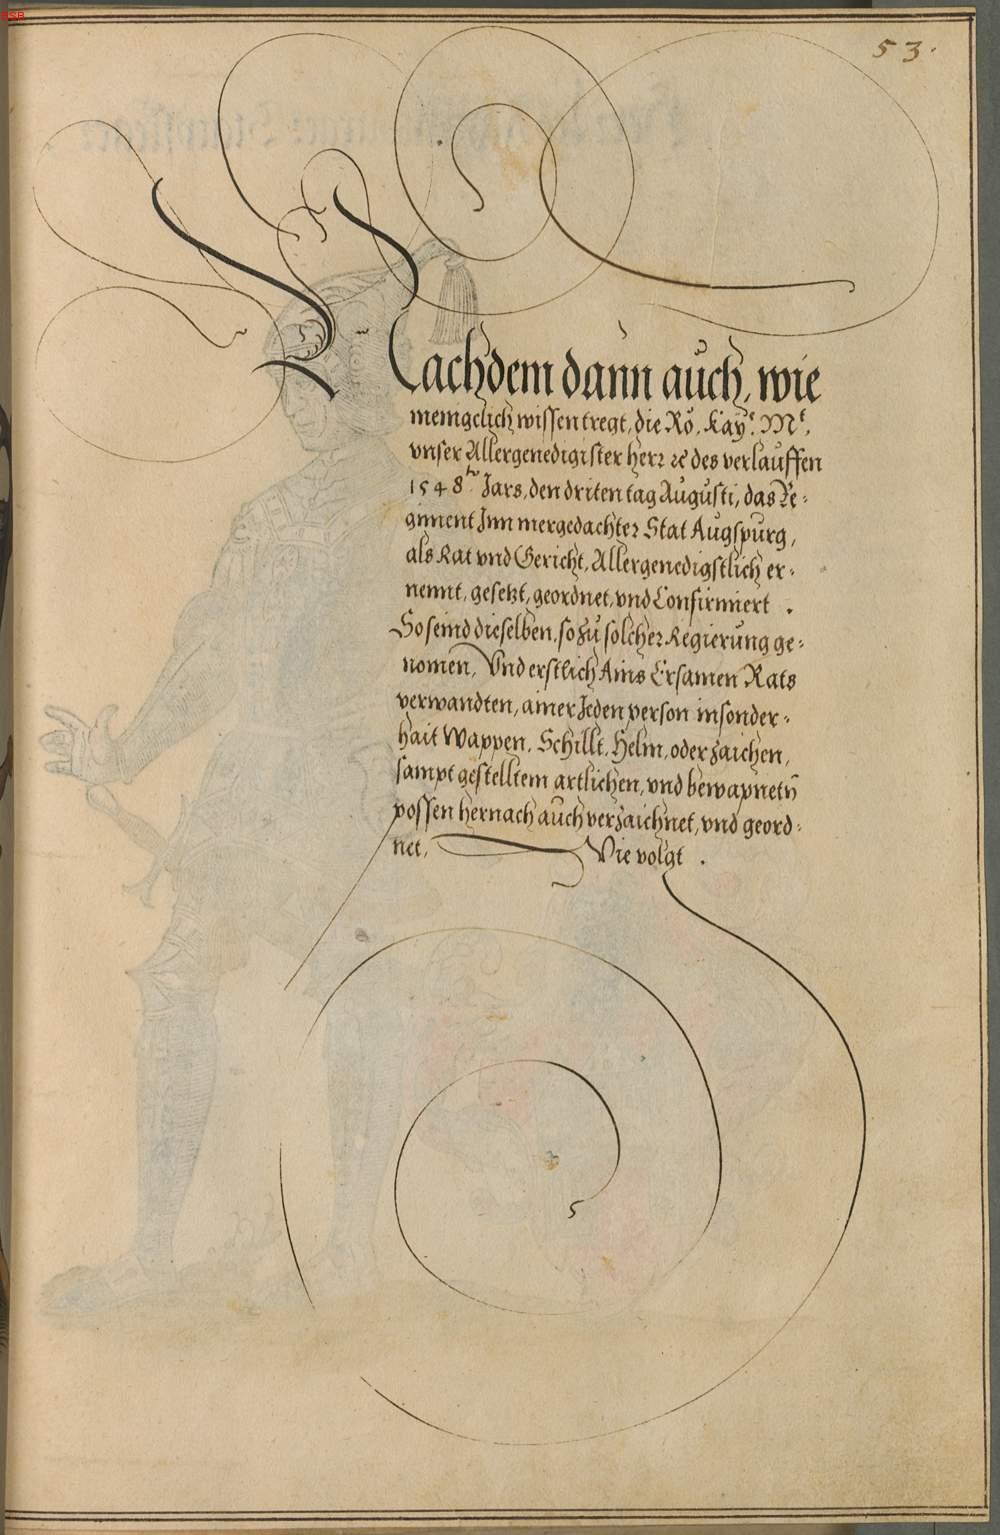 53.
Nachdem dann auch, wie
menigclich wissen tregt, die Rö. Kay. Mt.
vnser Allergenedigister herr ꝛc des verlauffen
1548ten Jars, den driten tag Augusti, das Re-
giment Inn mergedachter Stat Augspurg,
als Rat vnd Gericht, Allergenedigstlich er-
nennt, gesetzt, geordnet, vnd Confirmiert .
So seind dieselben, so zu solcher Regierung ge-
nomen, Vnd erstlich Ains Ersamen Rats
verwandten, ainer Jeden person insonder-
hait Wappen, Schillt, Helm, oder zaichen,
sampt gestelltem artlichen, vnd bewapnetn̄
possen hernach auch verzaichnet, vnd geord-
net, Wie volgt .